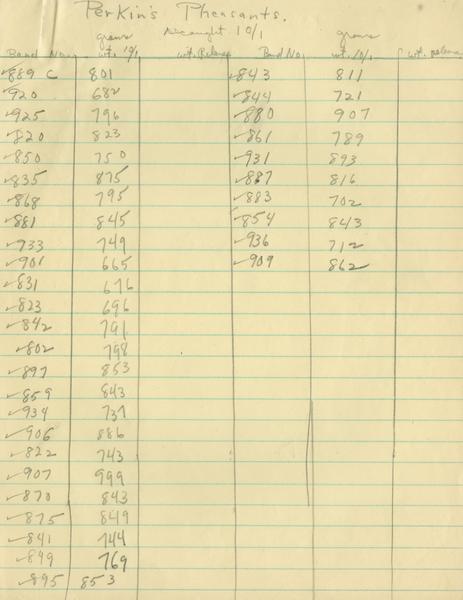 Perkin's Pheasants.
caught 10/1
grams grams
Band No. wt. 10/1 wt. Release Band No. wt. 10/1 wt. release
889 C 801 843 811
920 682 844 721
925 796 880 907
820 823 861 789
850 750 931 893
835 875 887 816
868 795 883 702
881 845 854 843
933 749 936 712
901 665 909 862
831 676
823 696
842 791
802 798
897 853
859 843
934 737
906 886
822 743
907 999
870 843
875 849
841 744
849 769
895 853